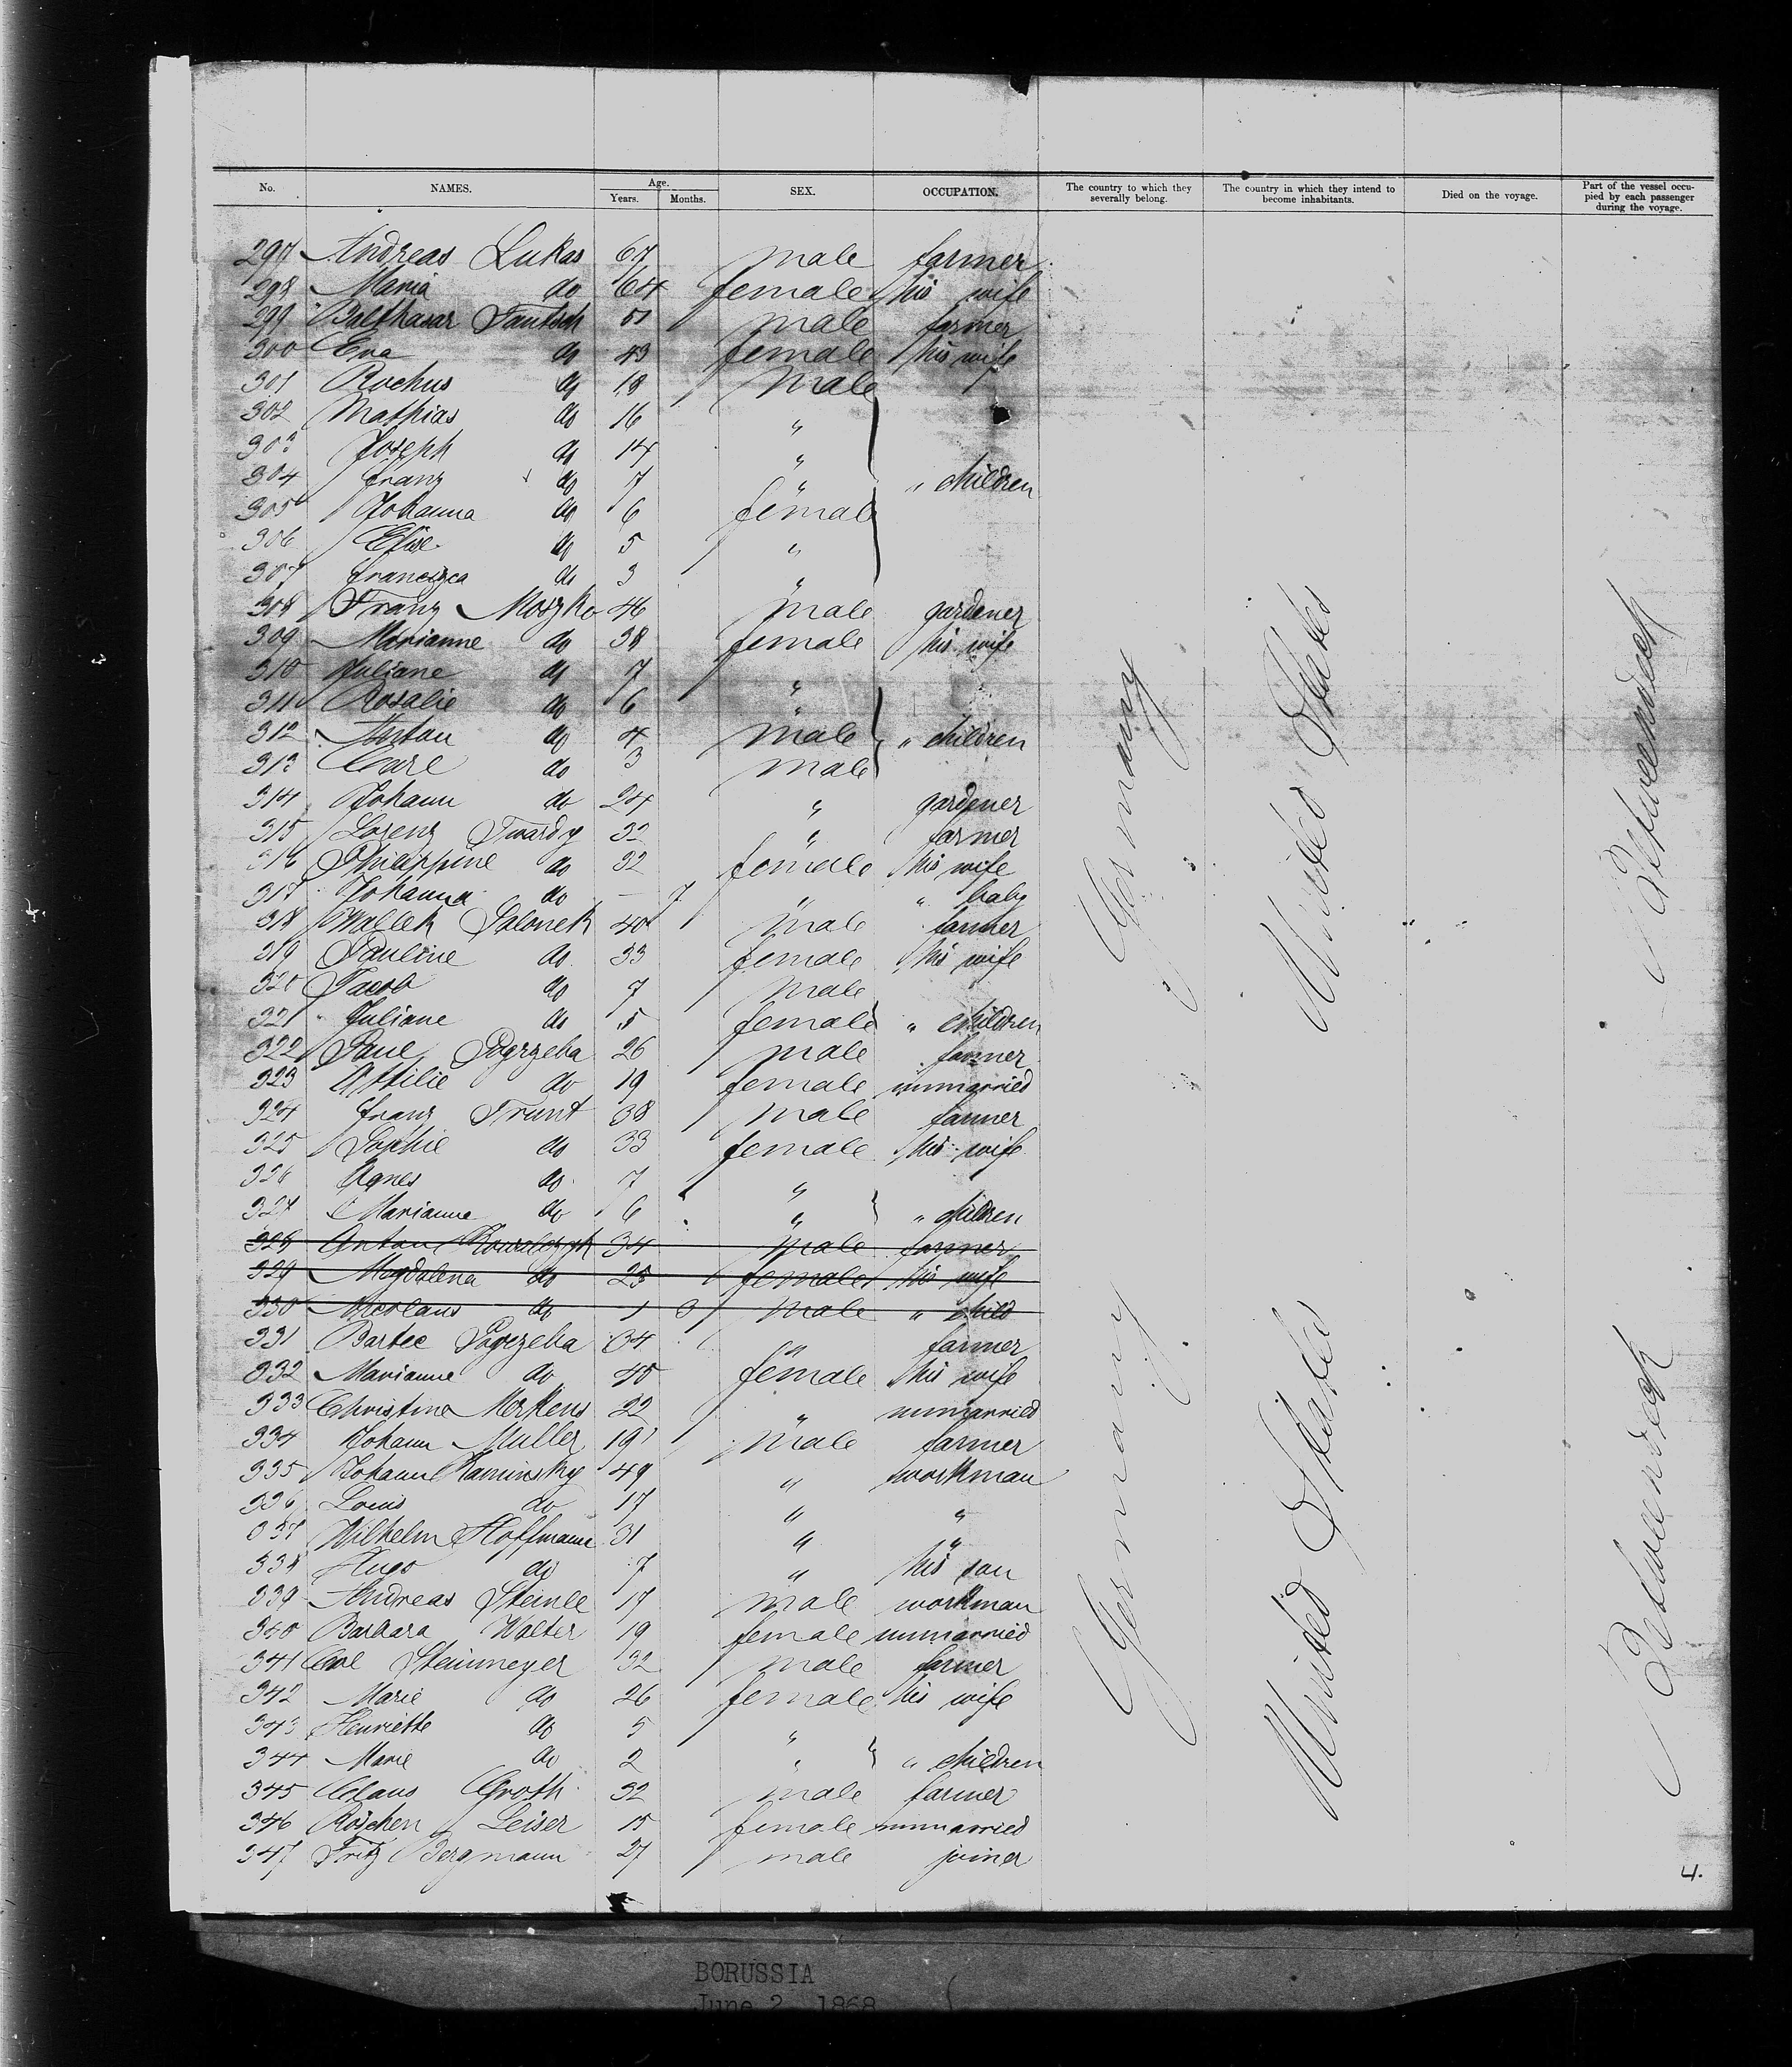 No. NAMES. Age. Years. Months. SEX. OCCUPATION. The country to which they severally belong. The country in which they intend to become inhabitants. Died on the voyage. Part of the vessel occupied by each passenger during the voyage.
297 Andreas Lukas 67 male farmer
298 Maria do 64 female his wife
299 Balthasar Tautsch 51 male farmer
300 Eva do 43 female his wife
301 Rochus do 18 male
302 Mathias do 16 "
303 Joseph do 14 "
304 Franz do 7 " " children
305 Johanna do 6 female
306 Elise do 5 "
307 Francisca do 3 "
308 Franz Moszko 46 male gardener
309 Marianne do 38 female his wife
310 Juliane do 7 "
311 Rosalie do 6 "
312 Anton do 4 male " children
313 Carl do 3 male
314 Johann do 24 " gardener
315 Lorenz Twardy 32 " farmer
316 Philippine do 32 female his wife
317 Johanna do — 7 " " baby
318 Wallek Palonek 40 male farmer
319 Pauline do 33 female his wife
320 Jacob do 7 male
321 Juliane do 5 female " children
322 Paul Pogrzeba 26 male farmer
323 Ottilie do 19 female unmarried
324 Franz Trunt 38 male farmer
325 Sophie do 33 female his wife
326 Agnes do 7 "
327 Marianne do 6 " " children
328 Anton Kowalczyk 34 male farmer
329 Magdalena do 25 female his wife
330 Nicolaus do 1 male " child
331 Bartec Pogrzeba 34 " farmer
332 Marianne do 40 female his wife
333 Christine Merkens 22 " unmarried
334 Johann Muller 19 male farmer
335 Johann Kaminsky 49 " workman
336 Louis do 17 " "
337 Wilhelm Hoffmann 31 " "
338 Hugo do 7 " his son
339 Andreas Steinle 17 male workman
340 Barbara Walter 19 female unmarried
341 Carl Steinmeyer 32 male farmer
342 Marie do 26 female his wife
343 Henriette do 5 "
344 Marie do 2 " " children
345 Claus Groth 32 male farmer
346 Röschen Leiser 15 female unmarried
347 Fritz Bergmann 27 male joiner
Germany
United States
Betweendeck
Germany
United States
Betweendeck
4.
BORUSSIA
June 2, 1868